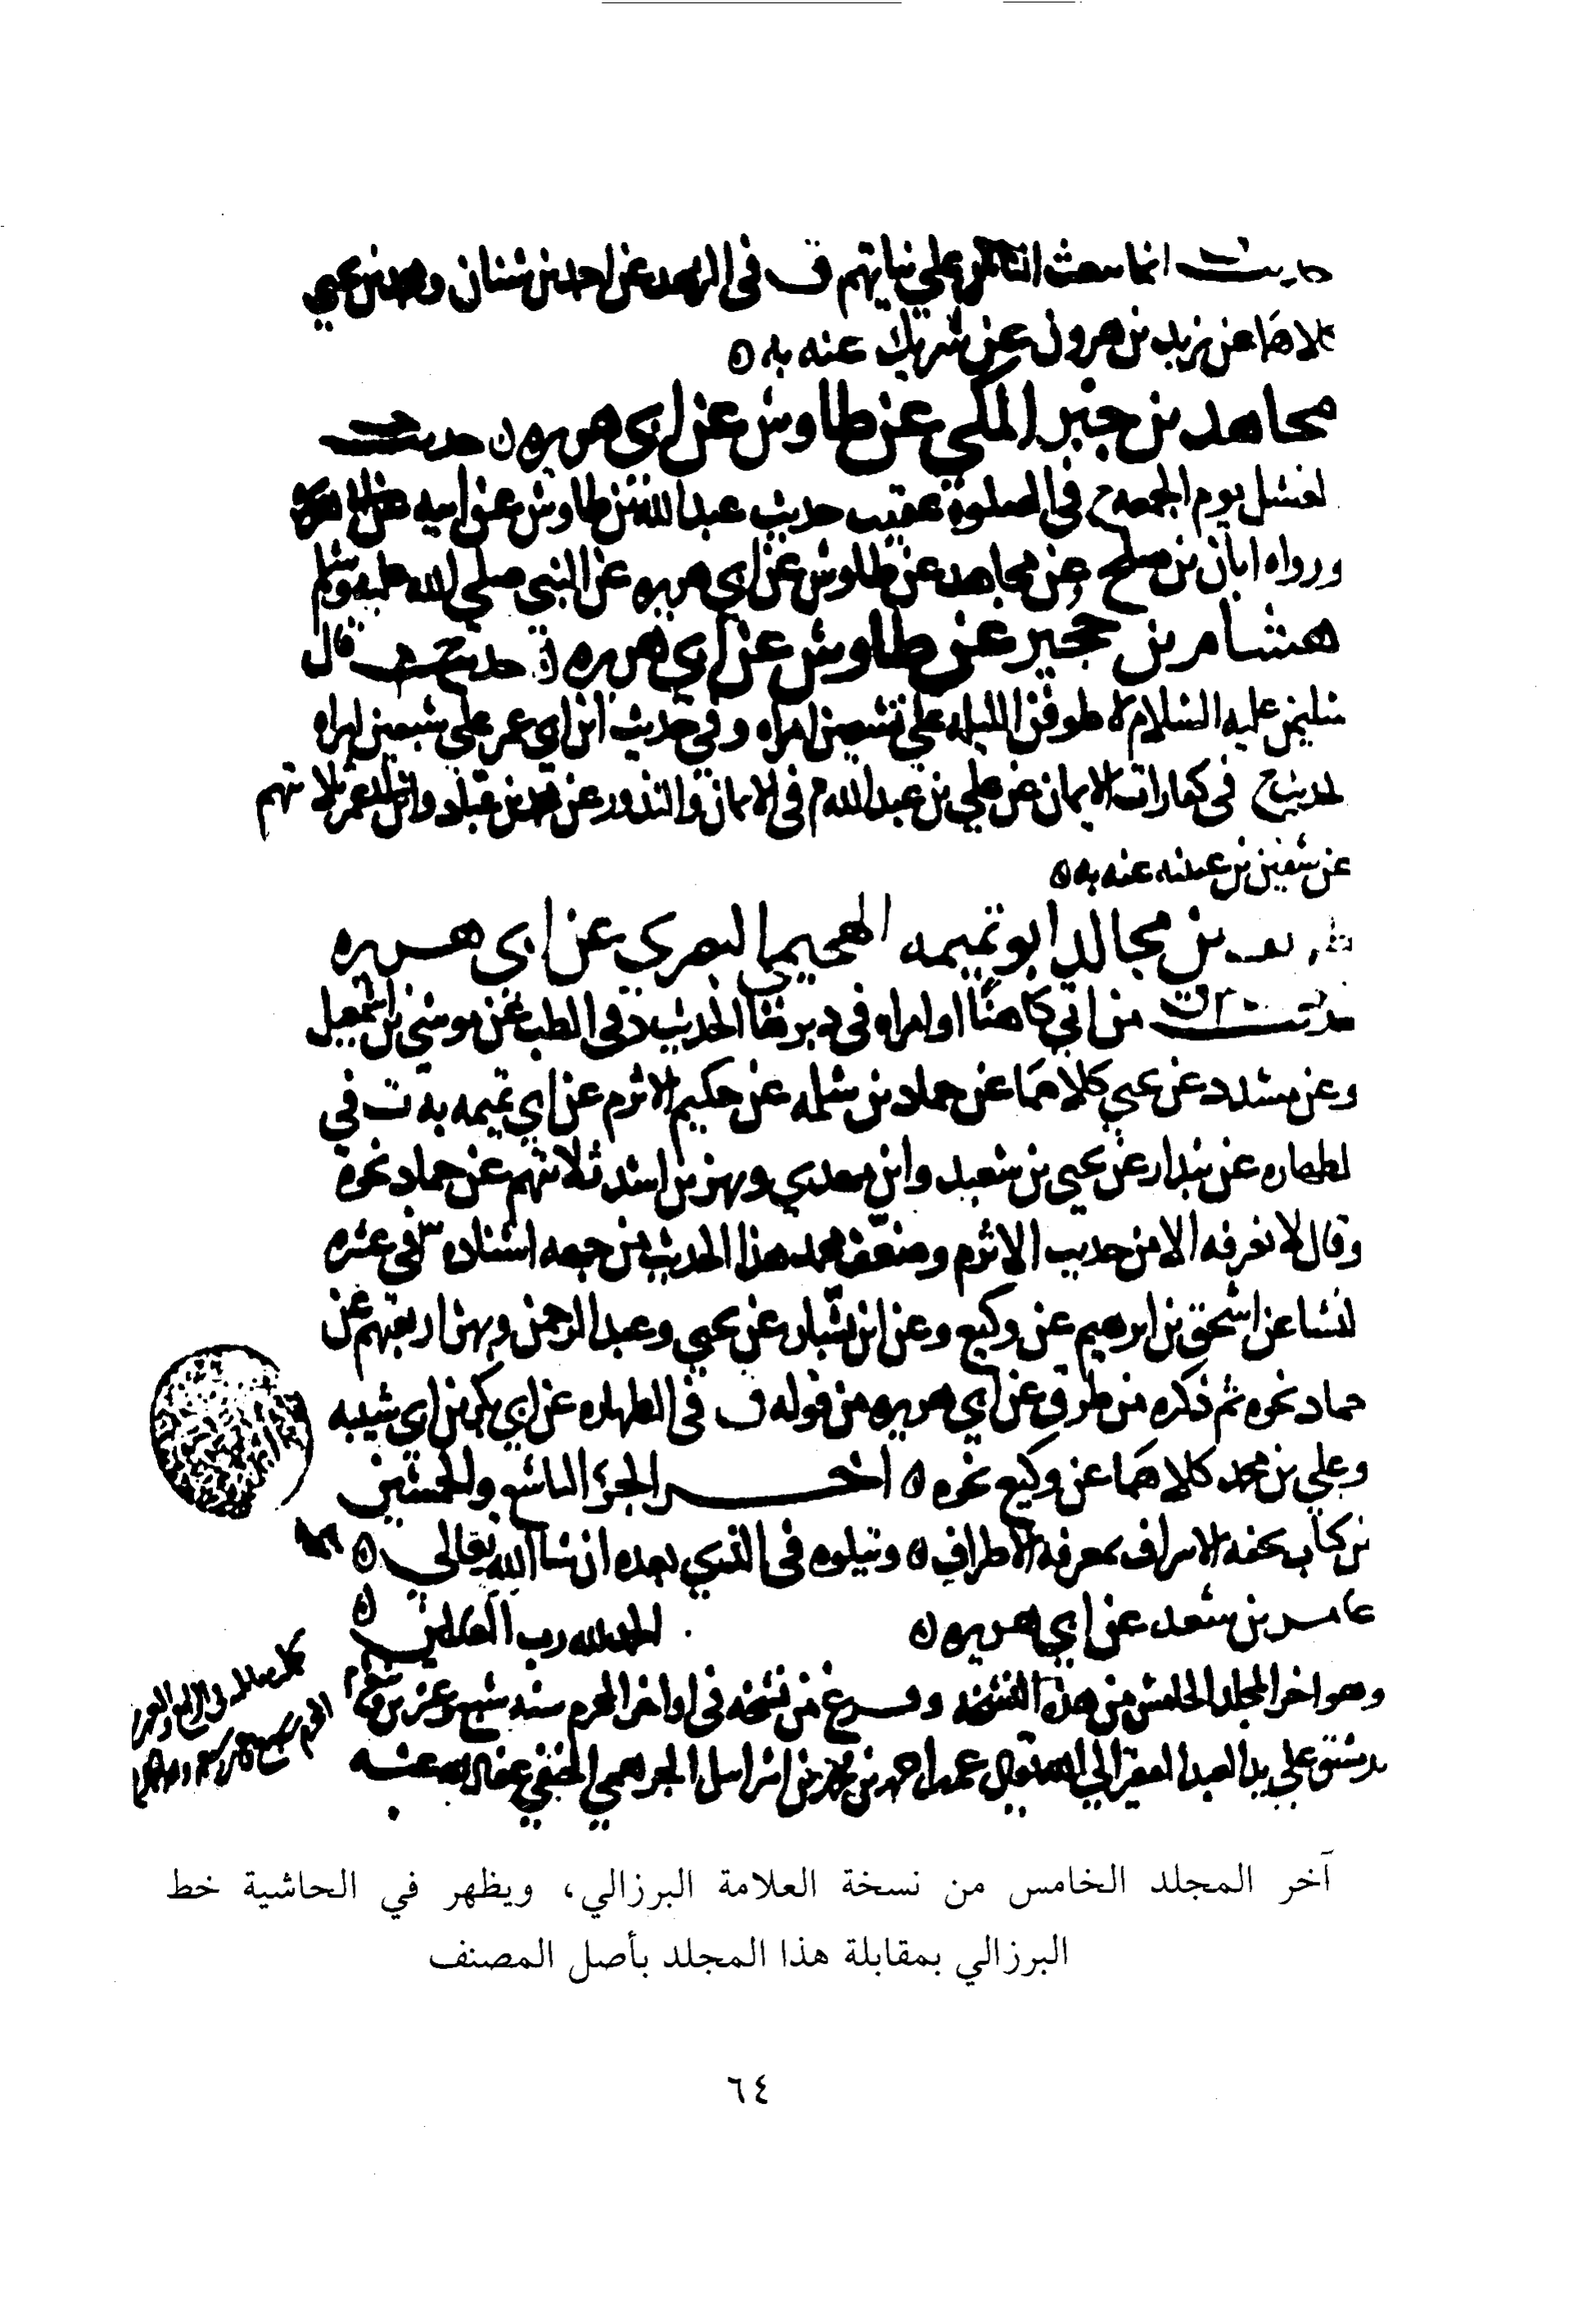 حديث انما يبعث الناس علي نياتهم ق في الزهد عن احمد بن سنان ومحمد بن يحيي
كلاهما عن يزيد بن هرون عن شريك عنه به
مجاهد بن جبر المكي عن طاوس عن ابي هريره حديث
لغسل يوم الجمعه خ في الصلوة عقيب حديث عبد الله بن طاوس عن ابيه عن ابي هريره
ورواه ابان بن صلح عن مجاهد عن طاوس عن ابي هريره عن النبي صلي الله عليه وسلم
هشام بن حجير عن طاوس عن ابي هريره حديث قال
سليمن عليه السلام لاطوفن الليله علي تسعين امراه وفي حديث ابن ابي عمر علي سبعين امراه
لحديث خ في كفارات الايمان عن علي بن عبد الله م في الايمان والنذور عن محمد بن عباد وابن ابي عمر ثلاثتهم
عن سفين بن عيينه عنه به
طريف بن مجالد ابو تميمه الهجيمي البصري عن ابي هريره
حديث من اتي كاهنا او امراه في دبرها الحديث د في الطب عن موسي بن اسمعيل
وعن مسدد عن يحيي كلاهما عن حماد بن سلمه عن حكيم الاثرم عن ابي تميمه به ت في
لطهاره عن بندار عن يحيي بن سعيد وابن مهدي وبهز بن اسد ثلاثتهم عن حماد نحوه
وقال لا نعرفه الا من حديث الاثرم وضعف محمد هذا الحديث من جهه اسناده س في عشره
لنسا عن اسحق بن ابرهيم عن وكيع وعن ابن بشار عن يحيي وعبد الرحمن وبهز اربعتهم عن
حماد نحوه ثم ذكره من طرق عن ابي هريره من قوله ق في الطهاره عن ابي بكر بن ابي شيبه
وعلي بن محمد كلاهما عن وكيع نحوه اخر الجزء التاسع والخمسين
من كتاب تحفه الاشراف بمعرفه الاطراف ويتلوه في الذي بعده ان شا الله تعالي
عامر بن سعد عن ابي هريره الحمد لله رب العالمين
وهو اخر المجلد الخامس من هذه النسخه وفرغ من نسخه في اواخر المحرم سنه سبع وعشرين
بدمشق علي يد العبد الفقير الي الله احمد بن محمد بن الحنفي عفا الله عنه
آخر المجلد الخامس من نسخة العلامة البرزالي، ويظهر في الحاشية خط
البرزالي بمقابلة هذا المجلد بأصل المصنف
٦٤